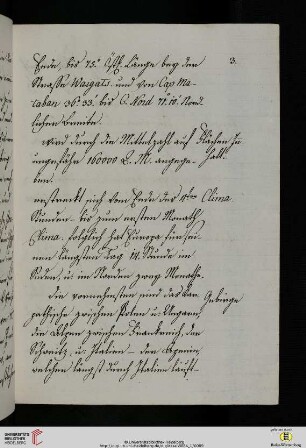 Ende, bis 75.° Östl. Länge bey der
3.
Strasse Waigats und von Cap Ma-
taban 36.° 33. bis C. Nord 71.° 10.' Nörd
licher Breite.
wird durch die Mittelzahl auf Flächen In
ungefähr 160000 Q. M. angege- halt.
ben.
erstreckt sich vom Ende des 4ten Clima
Stunden- bis zum ersten Monath
Clima. folglich hat Europa in sei-
nem längsten Tag 14. Stunde im
Süden, u: im Norden zway Monathe.
die vornehmsten sind das Kar- Gebirge
pathische zwischen Polen u: Ungarn,
die Alpen zwischen Frankreich, der
Schweitz, u: Italien – der Apenin,
welcher längst durch Italien läuft-
UNIVERSITÄTS-
BIBLIOTHEK
HEIDELBERG
© Universitätsbibliothek Heidelberg